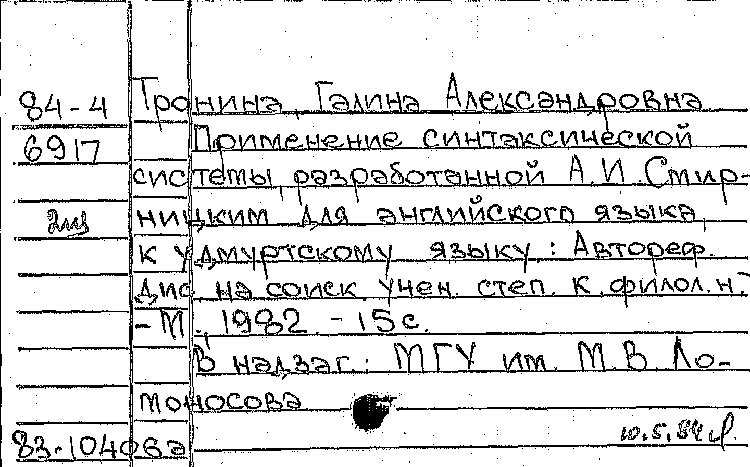 84-4 Тронина, Галина Александровна
6917 Применение синтаксической
системы, разработанной А.И. Смир-
2лц ницким для английского языка,
к удмуртскому языку: Автореф.
дис. на соиск. учен. степ. к. филол. н. -
- М., 1982. - 15 с.
В надзаг.: МГУ им. М.В. Ло-
моносова
83-10406а 10.5.84